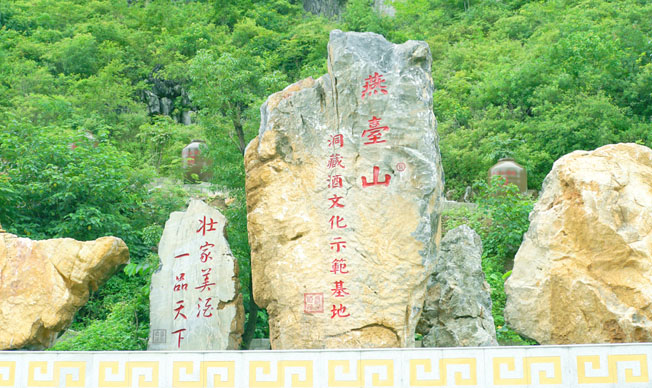 燕臺山
洞藏酒文化示範基地
壮家美酒
一品天下